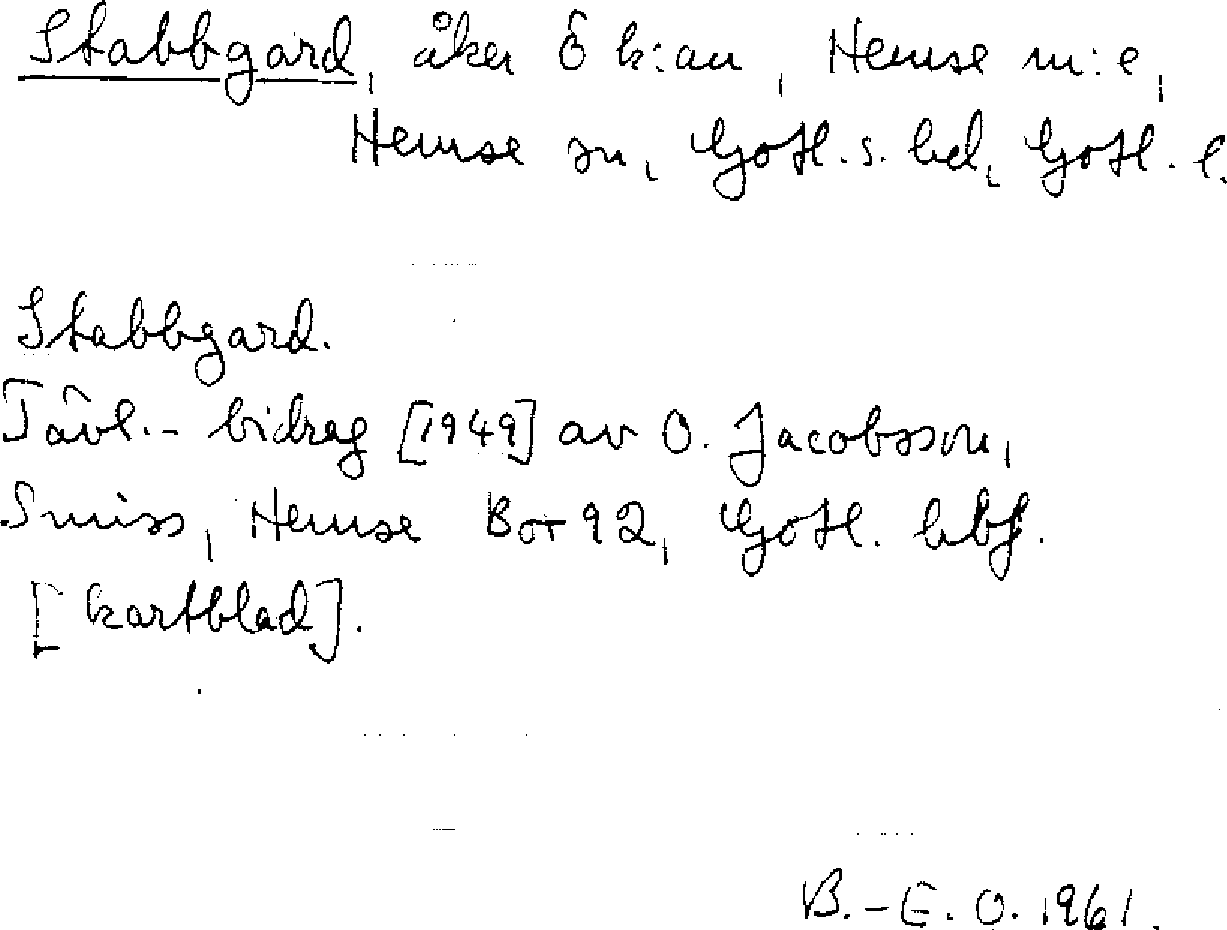 Stabbgard, åker Ö k:an, Hemse m:e,
Hemse sn, Gotl. s. hd, Gotl. l.
Stabbgard.
Tävl.- bidrag [1949] av O. Jacobsson,
Smiss, Hemse Box 92, Gotl. hbf.
[kartblad].
B.-E. O. 1961.